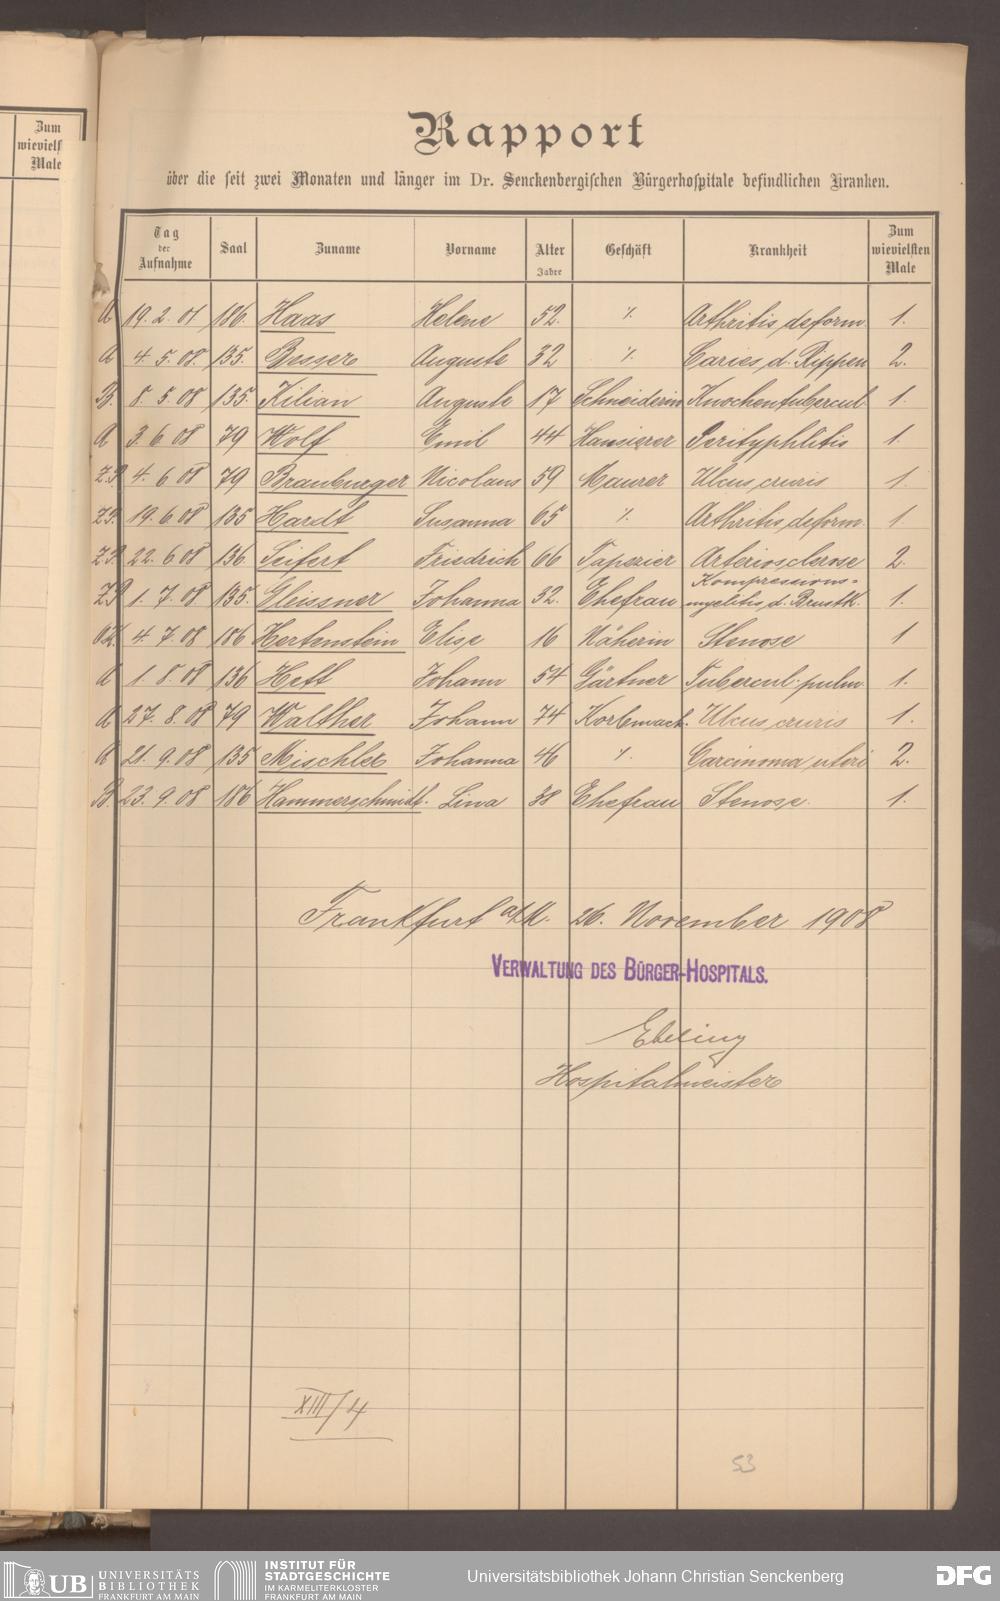 Zum
wievielst
Male
Rapport
über die seit zwei Monaten und länger im Dr. Senckenbergischen Bürgerhospitale befindlichen Kranken.
Tag der Aufnahme Saal Zuname Vorname Alter Jahre Geschäft Krankheit Zum wievielsten Male
A 19. 2. 01 186. Haas Helene 52. ./. Arthritis deform. 1.
A 4. 5. 08. 135. Besser Auguste 32 ./. Caries d. Rippen 2.
B. 8. 5. 08 135. Kilian Auguste 17 Schneiderin Knochentubercul 1.
A 3. 6 08 79 Wolf Emil 44 Hausierer Perityphlitis 1.
Z.P. 4. 6 08 79 Brauburger Nicolaus 59 Maurer Ulcus cruris 1.
Z.P. 19. 6 08 135 Hardt Susanna 65 ./. Arthritis deform. 1.
Z.P. 22. 6 08 136 Seifert Friedrich 66 Tapezier Arteriosclerose 2.
Z.P. 1. 7. 08 135. Gleissner Johanna 32. Ehefrau Kompressions-
myelitis d. Brustk. 1.
4. 7. 08 186 Hertenstein Elise 16 Näherin Stenose 1
A 1. 8. 08 136 Hett Johann 54 Gärtner Tubercul. pulm. 1.
A 27. 8. 08 79 Walther Johann 74 Korbmach. Ulcus cruris 1.
A 21. 9. 08 135 Mischler Johanna 46 ./. Carcinoma uteri 2.
B. 23. 9. 08 186 Hammerschmidt. Lina 38 Ehefrau Stenose. 1.
Frankfurt a/M. 26. November 1908
VERWALTUNG DES BÜRGER-HOSPITALS.
Ebeling
Hospitalmeister
XIII/4
53
UB UNIVERSITÄTS
BIBLIOTHEK
FRANKFURT AM MAIN
INSTITUT FÜR
STADTGESCHICHTE
IM KARMELITERKLOSTER
FRANKFURT AM MAIN
Universitätsbibliothek Johann Christian Senckenberg
DFG